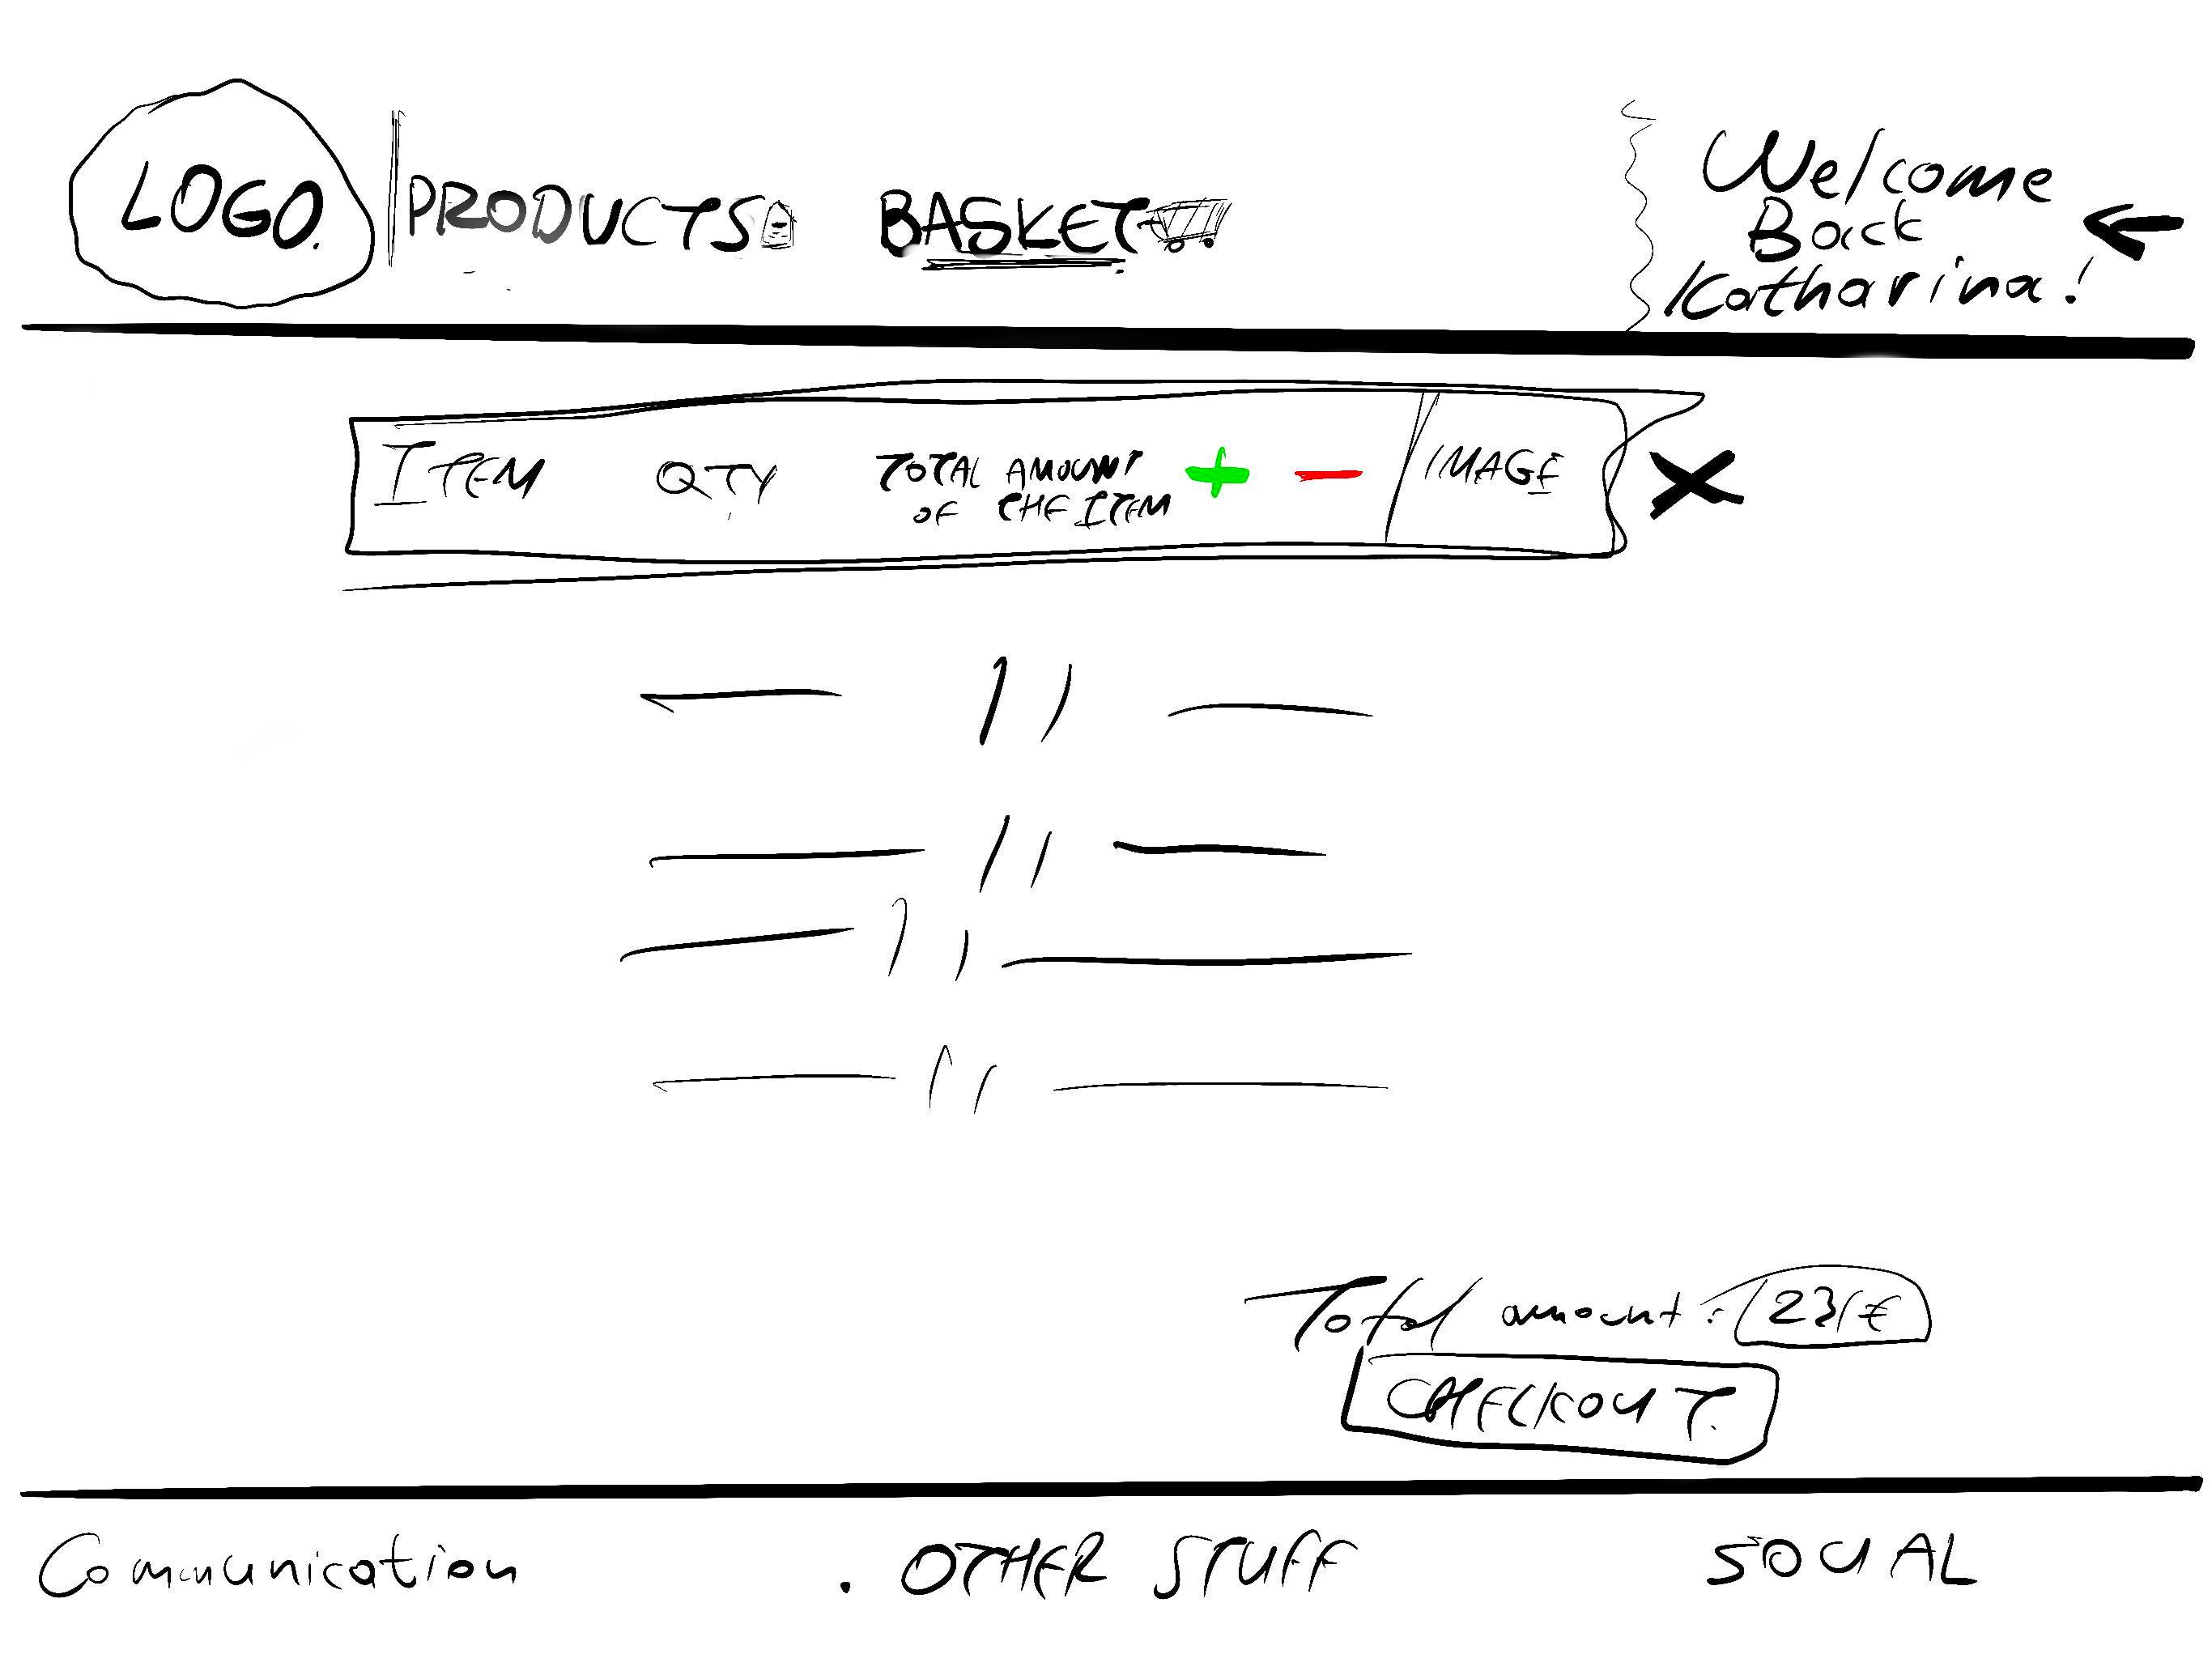 LOGO.
PRODUCTS BASKET
Welcome
Back
Katharina!
ITEM QTY TOTAL AMOUNT + - IMAGE X
OF THE ITEM
— || —
— || —
— || —
— || —
Total amount: 231€
CHECKOUT.
Communication . OTHER STUFF SOCIAL